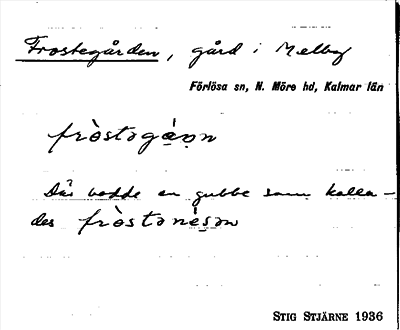 Frostegården, gård i Melby
Förlösa sn, N. Möre hd, Kalmar län
fròstəgàɷn
Där bodde en gubbe som kalla-
des fròstənèsɷn
STIG STJÄRNE 1936